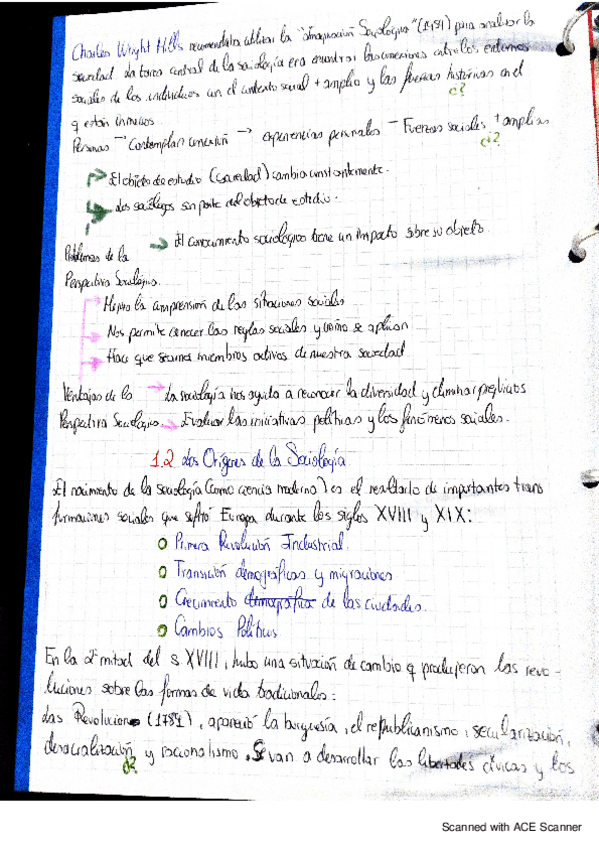 Charles Wright Hills recomendaba utilizar la "Imaginación Sociológica" (1981) para analizar la
sociedad. La tarea central de la sociología era encontrar las conexiones entre los entornos
sociales de los individuos con el contexto social + amplio y las fuerzas históricas en el
q están inmersos.
¿?
Personas → Contemplan conexión → experiencias personales - Fuerzas sociales + amplias
¿?
El objeto de estudio (sociedad) cambia constantemente.
Los sociólogos son parte del objeto de estudio.
El conocimiento sociológico tiene un impacto sobre su objeto.
Problemas de la
Perspectiva Sociológica.
Mejora la comprensión de las situaciones sociales
Nos permite conocer las reglas sociales y cómo se aplican
Hace que seamos miembros activos de nuestra sociedad
Ventajas de la La sociología nos ayuda a reconocer la diversidad y eliminar prejuicios
Perspectiva Sociológica. Evaluar las iniciativas políticas y los fenómenos sociales.
1.2. Los Orígenes de la Sociología
El nacimiento de la sociología (como ciencia moderna) es el resultado de importantes trans
formaciones sociales que sufrió Europa durante los siglos XVIII y XIX:
Primera Revolución Industrial.
Transición demográficas y migraciones
Crecimiento demográfico de las ciudades.
Cambios Políticos
En la 2ª mitad del s. XVIII, hubo una situación de cambio q produjeron las revo-
luciones sobre las formas de vida tradicionales:
Las Revoluciones (1789), apareció la burguesía, el republicanismo, secularización,
desacralización y racionalismo. Se van a desarrollar las libertades cívicas y los
¿?
Scanned with ACE Scanner